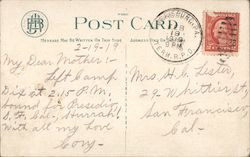 POST CARD
MESSAGE MAY BE WRITTEN ON THIS SIDE
ADDRESS ONLY ON THIS SIDE
2-19-19
My Dear Mother:-
Left Camp
Dix at 2.15 P.M.
bound for Presidio
S. F. Cal. Hurrah!
With all my Love
R.P.O.
Mrs. H. C. Lester,
29 Whittier St,
San Francisco,
Cal-